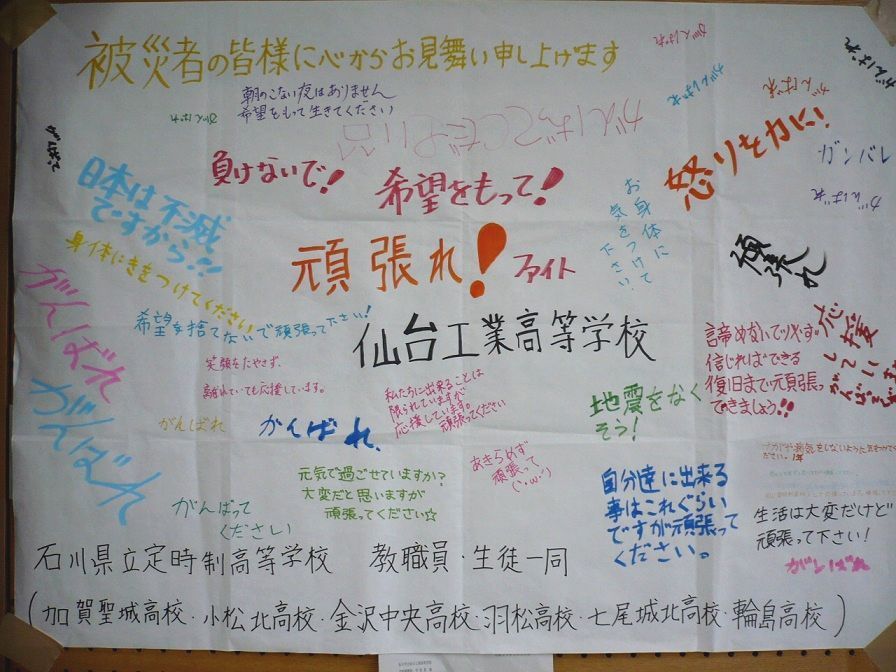 被災者の皆様に心からお見舞い申し上げます
がんばれ
がんばれ
朝のこない夜はありません
希望をもって生きてください
がんばれ
がんばれ
がんばれ
がんばってください
負けないで!
希望をもって!
怒りを力に!
ガンバレ
がんばれ
日本は不滅
ですから!!
お身体に
気をつけて
下さい。
頑張れ!
ファイト
頑張れ
身体にきをつけてください
希望を捨てないで頑張って下さい!
仙台工業高等学校
がんばれ
がんばれ
笑顔をたやさず、
離れていても応援しています。
私たちに出来ることは
限られていますが
応援しています。
頑張ってください
地震をなく
そう!
諦めないでッス。
信じればできる
復旧まで頑張っ
てきましょう!!
応援してい
がんばれ
がんばれ
がんばれ、
あきらめず
頑張って
(・ω・)
元気で過ごせていますか?
大変だと思いますが
頑張ってください☆
がんばって
ください
自分達に出来る
事はこれぐらい
ですが頑張って
ください。
生活は大変だけど
頑張って下さい!
がんばれ
石川県立定時制高等学校 教職員・生徒一同
(加賀聖城高校・小松北高校・金沢中央高校・羽松高校・七尾城北高校・輪島高校)